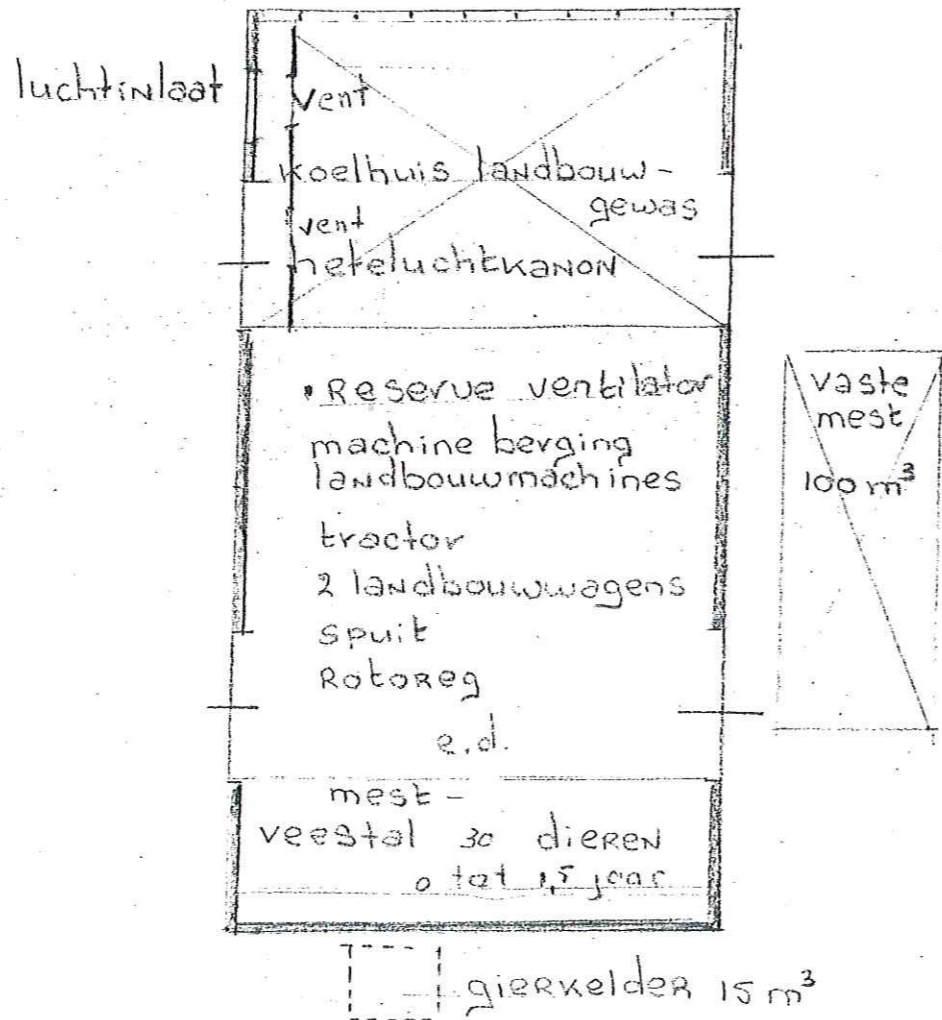 luchtinlaat
vent
koelhuis landbouw-
gewas
vent
heteluchtkanon
• Reserve ventilator
machine berging
landbouwmachines
tractor
2 landbouwwagens
spuit
Rotoreg
e.d.
vaste
mest
100 m³
mest-
veestal 30 dieren
0 tot 1,5 jaar
gierkelder 15 m³